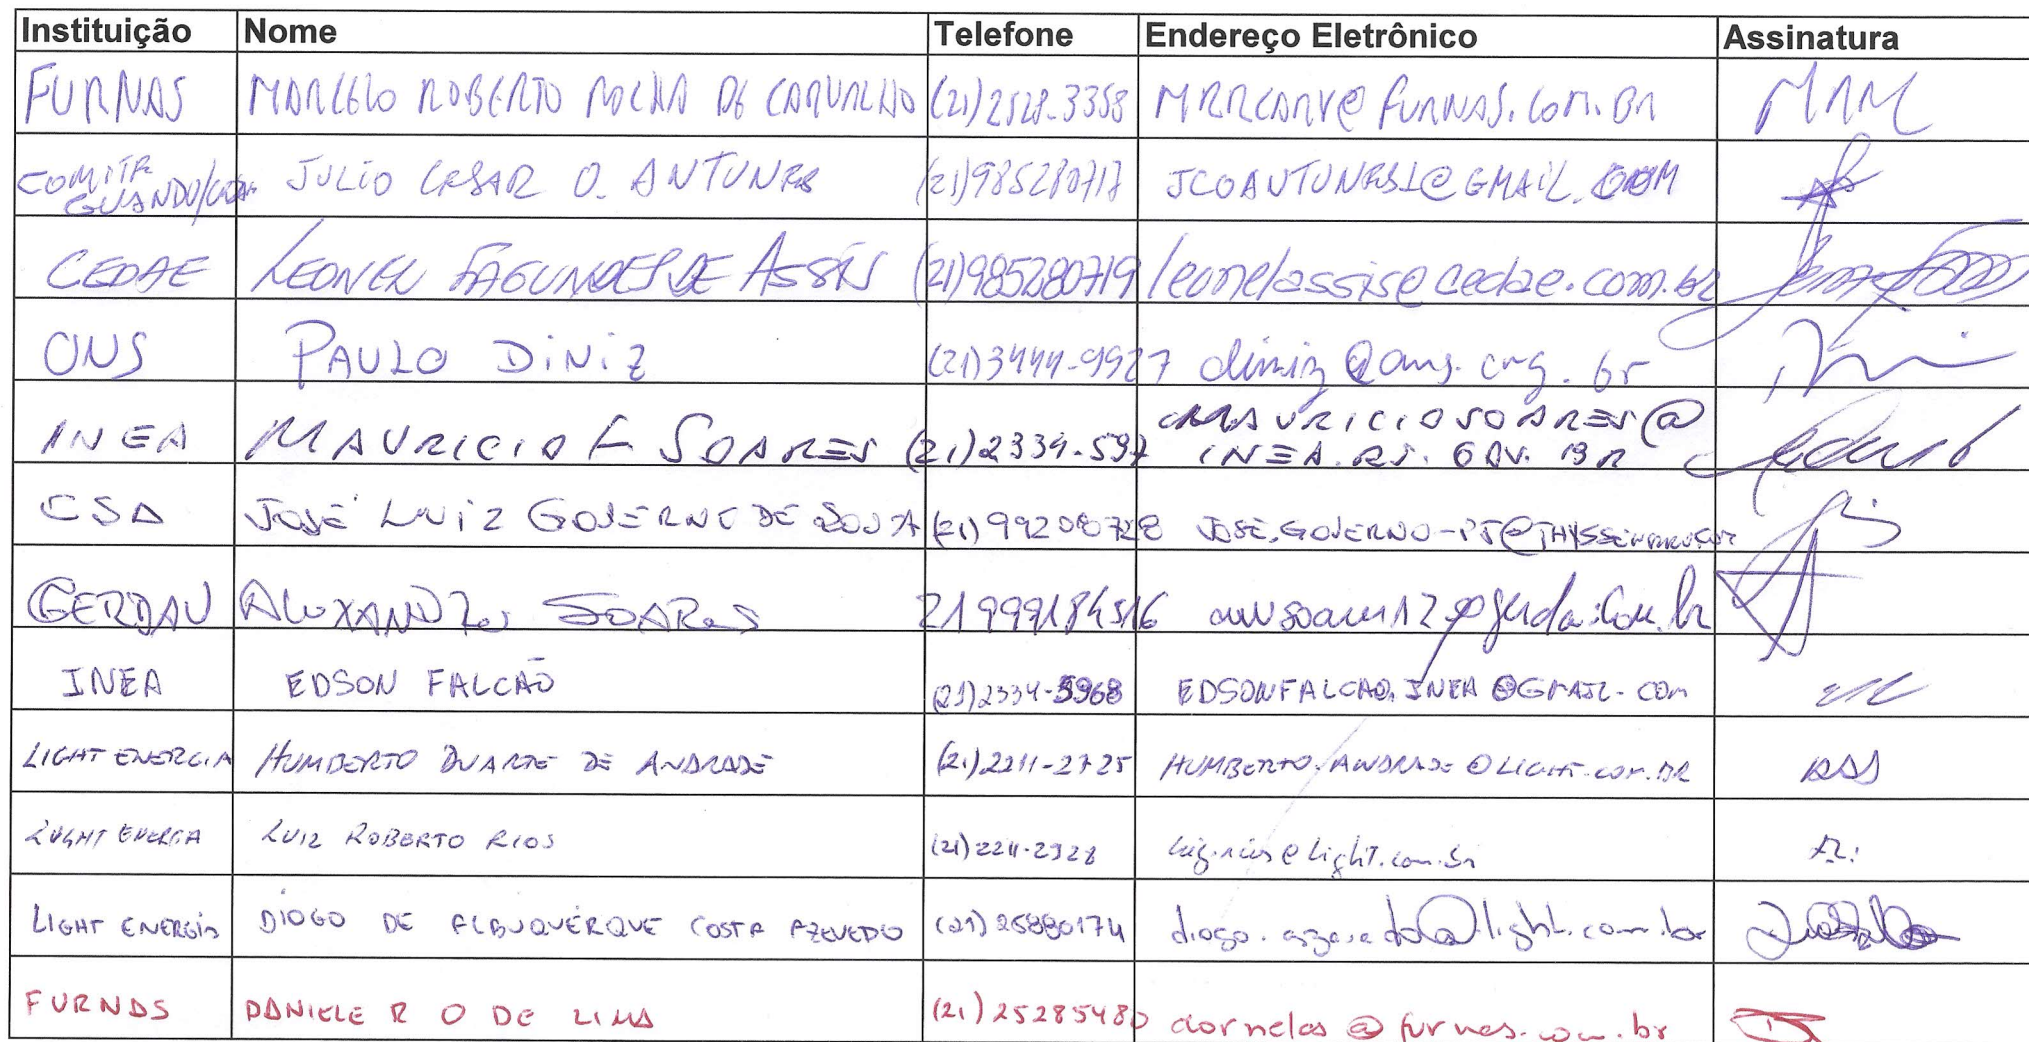 Instituição Nome Telefone Endereço Eletrônico Assinatura
FURNAS MARCELO ROBERTO ROCHA DE CARVALHO (21)2528-3358 MRRCARV@FURNAS.COM.BR
COMITÊ GUANDU JULIO CESAR O. ANTUNES (21)985280717 JCOANTUNES1@GMAIL.COM
CEDAE LEONEL FAGUNDES DE ASSIS (21)985280719 leonelassis@cedae.com.br
ONS PAULO DINIZ (21)3444-9927 diniz@ons.org.br
INEA MAURICIO F SOARES (21)2334-597 MAURICIOSOARES@
INEA.RJ.GOV.BR
CSA JOSÉ LUIZ GOVERNO DE SOUZA (21)992080728
GERDAU ALEXANDRE SOARES 21999184516
INEA EDSON FALCÃO (21)2334-5968 EDSONFALCAO.INEA@GMAIL.COM
LIGHT ENERGIA HUMBERTO DUARTE DE ANDRADE (21)2211-2725 HUMBERTO.ANDRADE@LIGHT.COM.BR
LIGHT ENERGIA LUIZ ROBERTO RIOS (21)2211-2928
LIGHT ENERGIA DIOGO DE ALBUQUERQUE COSTA AZEVEDO (21)25880174 diogo.azevedo@light.com.br
FURNAS DANIELE R O DE LIMA (21)25285480 dornelas@furnas.com.br